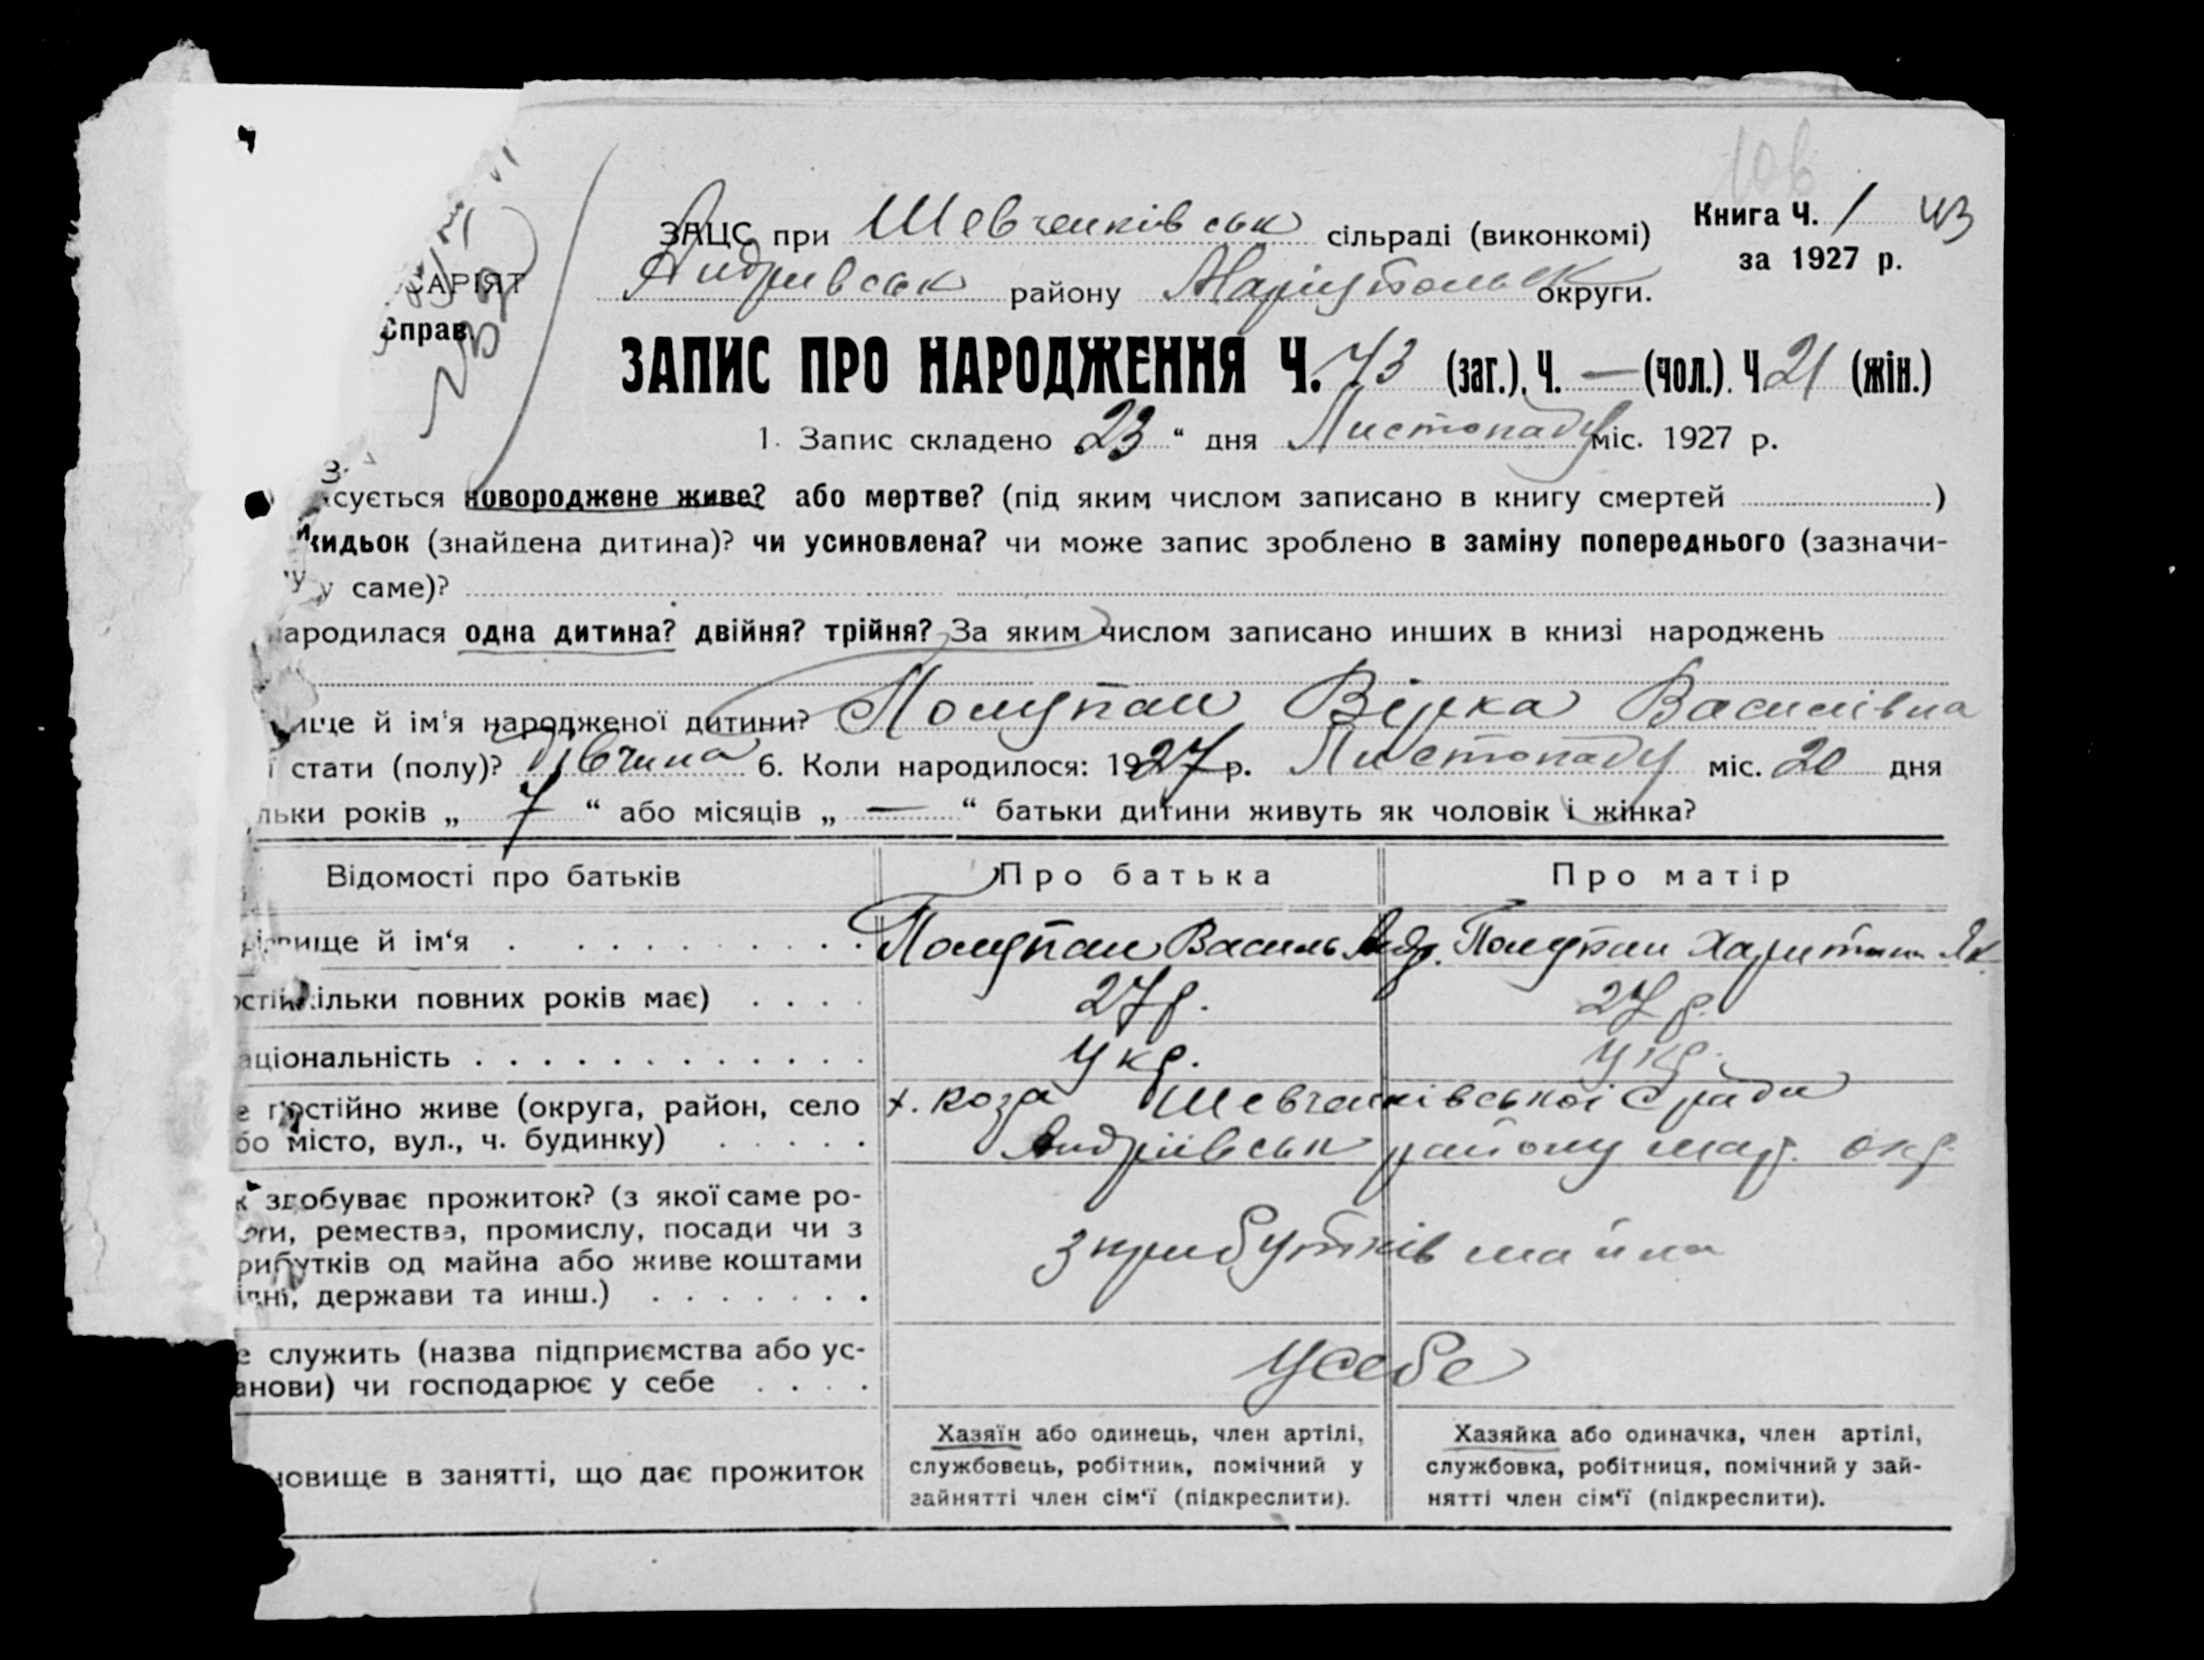 ЗАЦС при Шевченківськ сільраді (виконкомі) Книга Ч. 1 43
за 1927 р.
САРІЯТ Андрівськ району Маріупольськ округи.
Справ.
ЗАПИС ПРО НАРОДЖЕННЯ Ч. 43 (заг.). Ч. — (чол.). Ч 21 (жін.)
1. Запис складено 23 “ дня Листопаду міс. 1927 р.
сується новороджене живе? або мертве? (під яким числом записано в книгу смертей )
кидьок (знайдена дитина)? чи усиновлена? чи може запис зроблено в заміну попереднього (зазначи-
у саме)?
народилася одна дитина? двійня? трійня? За яким числом записано инших в книзі народжень
ище й ім'я народженої дитини? Полупан Вірка Василівна
ї стати (полу)? Дівчина 6. Коли народилося: 1927 р. Листопаду міс. 20 дня
льки років „ 7 “ або місяців „ — “ батьки дитини живуть як чоловік і жінка?
Відомості про батьків Про батька Про матір
різвище й ім‘я Полупан Василь Андр. Полупан Харитина Як
кільки повних років має) 27 р. 27 р.
аціональність Укр. Укр.
е постійно живе (округа, район, село х. Коза Шевченківської С ради
бо місто, вул., ч. будинку) Андріївськ району мар. окр.
к здобуває прожиток? (з якої саме ро-
оти, ремества, промислу, посади чи з
рибутків од майна або живе коштами з прибутків майна
ідні, держави та инш.)
е служить (назва підприємства або ус-
анови) чи господарює у себе у себе
новище в занятті, що дає прожиток
Хазяїн або одинець, член артілі,
службовець, робітник, помічний у
зайнятті член сім‘ї (підкреслити).
Хазяйка або одиначка, член артілі,
службовка, робітниця, помічний у зай-
нятті член сім‘ї (підкреслити).